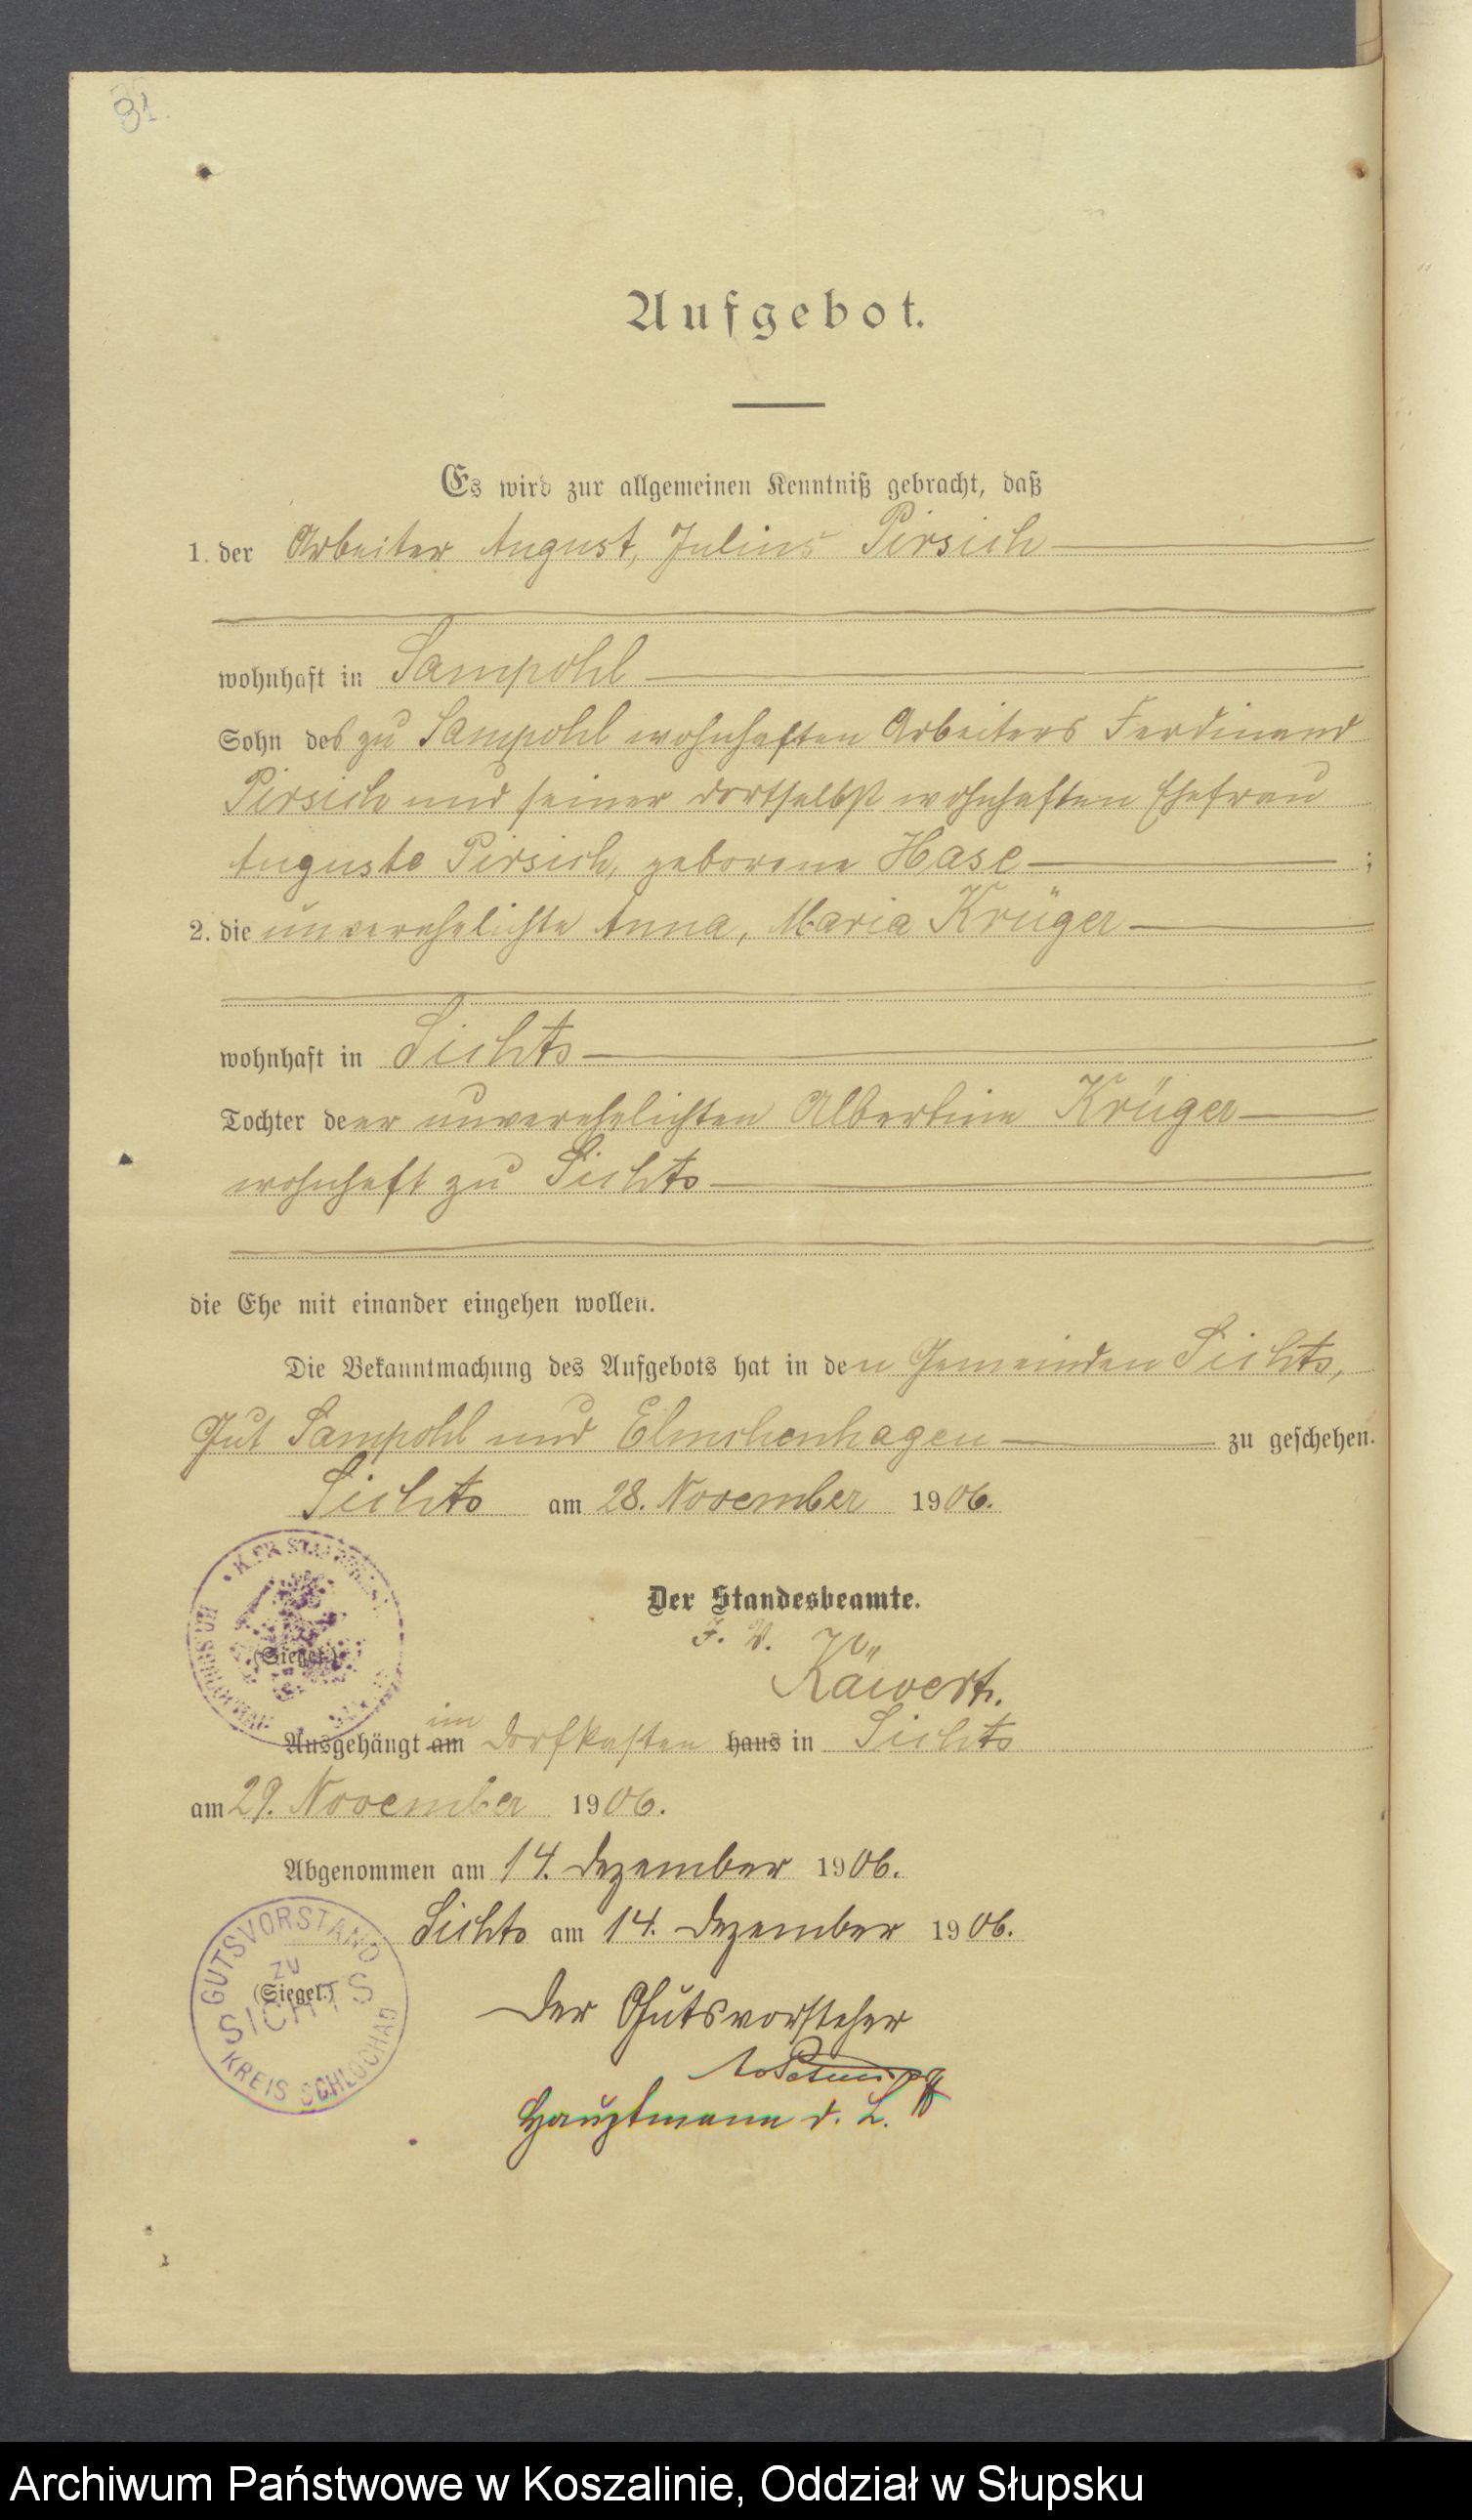 81.
Aufgebot.
Es wird zur allgemeinen Kenntniß gebracht, daß
1. der Arbeiter August, Julius Pirsich
wohnhaft in Sampohl
Sohn des zu Sampohl wohnhaften Arbeiters Ferdinand
Pirsich und seiner dortselbst wohnhaften Ehefrau
Auguste Pirsich, geborene Hase ;
2. die unverehelichte Anna, Maria Krüger
wohnhaft in Sichts
Tochter der unverehelichten Albertine Krüger
wohnhaft zu Sichts
die Ehe mit einander eingehen wollen.
Die Bekanntmachung des Aufgebots hat in den Gemeinden Sichts,
Gut Sampohl und Elmschenhagen zu geschehen.
Sichts am 28. November 1906.
Der Standesbeamte.
(Siegel.)
I. V.
Käwert.
im
Ausgehängt am Dorfkasten haus in Sichts
am 29. November 1906.
Abgenommen am 14. Dezember 1906.
Sichts am 14. Dezember 1906.
GUTSVORSTAND
ZU
(Siegel.)
SICHTS
KREIS SCHLOCHAU
Der Gutsvorsteher
Hauptmann d. L.
Archiwum Państwowe w Koszalinie, Oddział w Słupsku